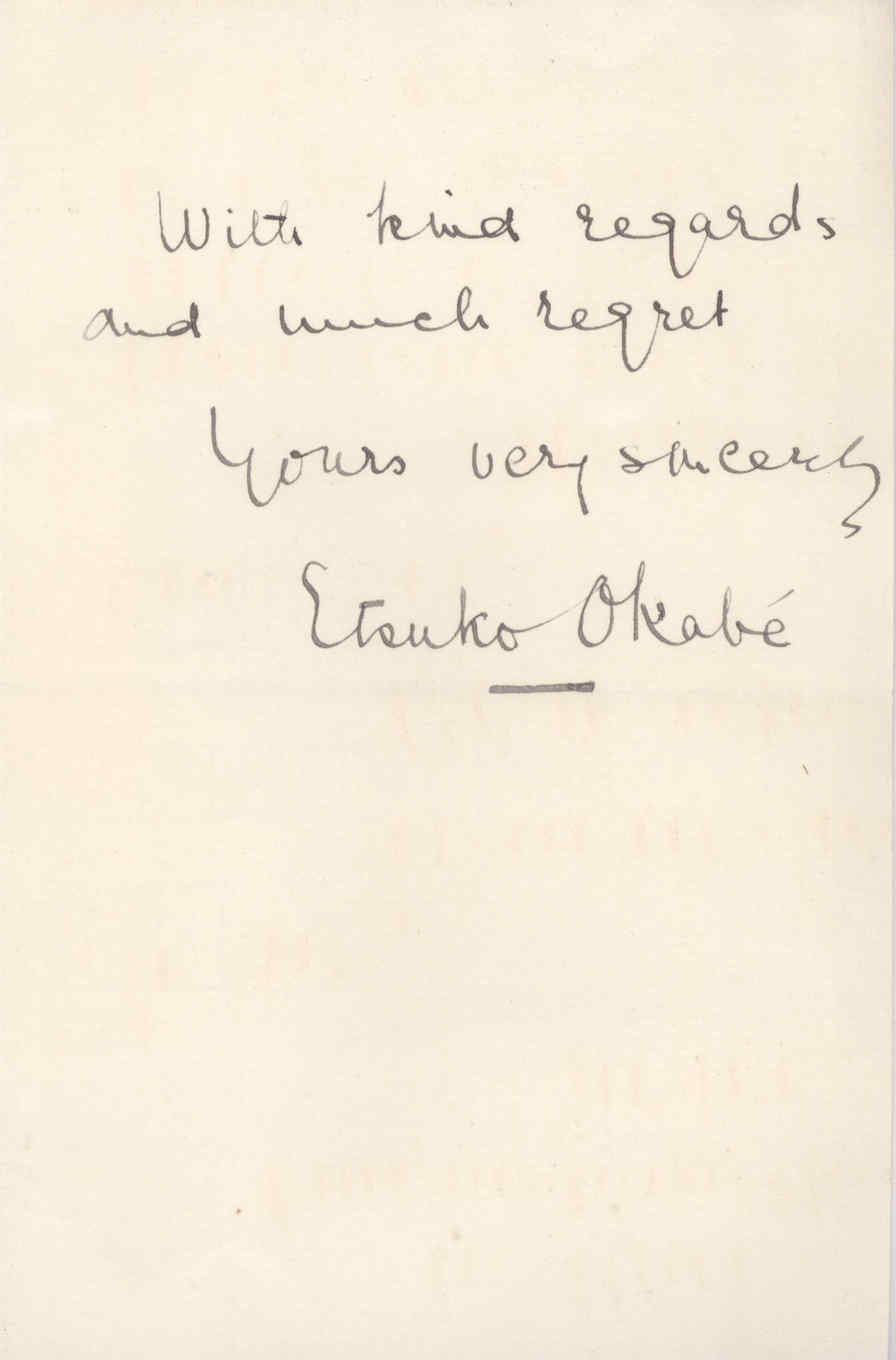 With kind regards
and much regret
Yours very sincerely
Etsuko Okabé